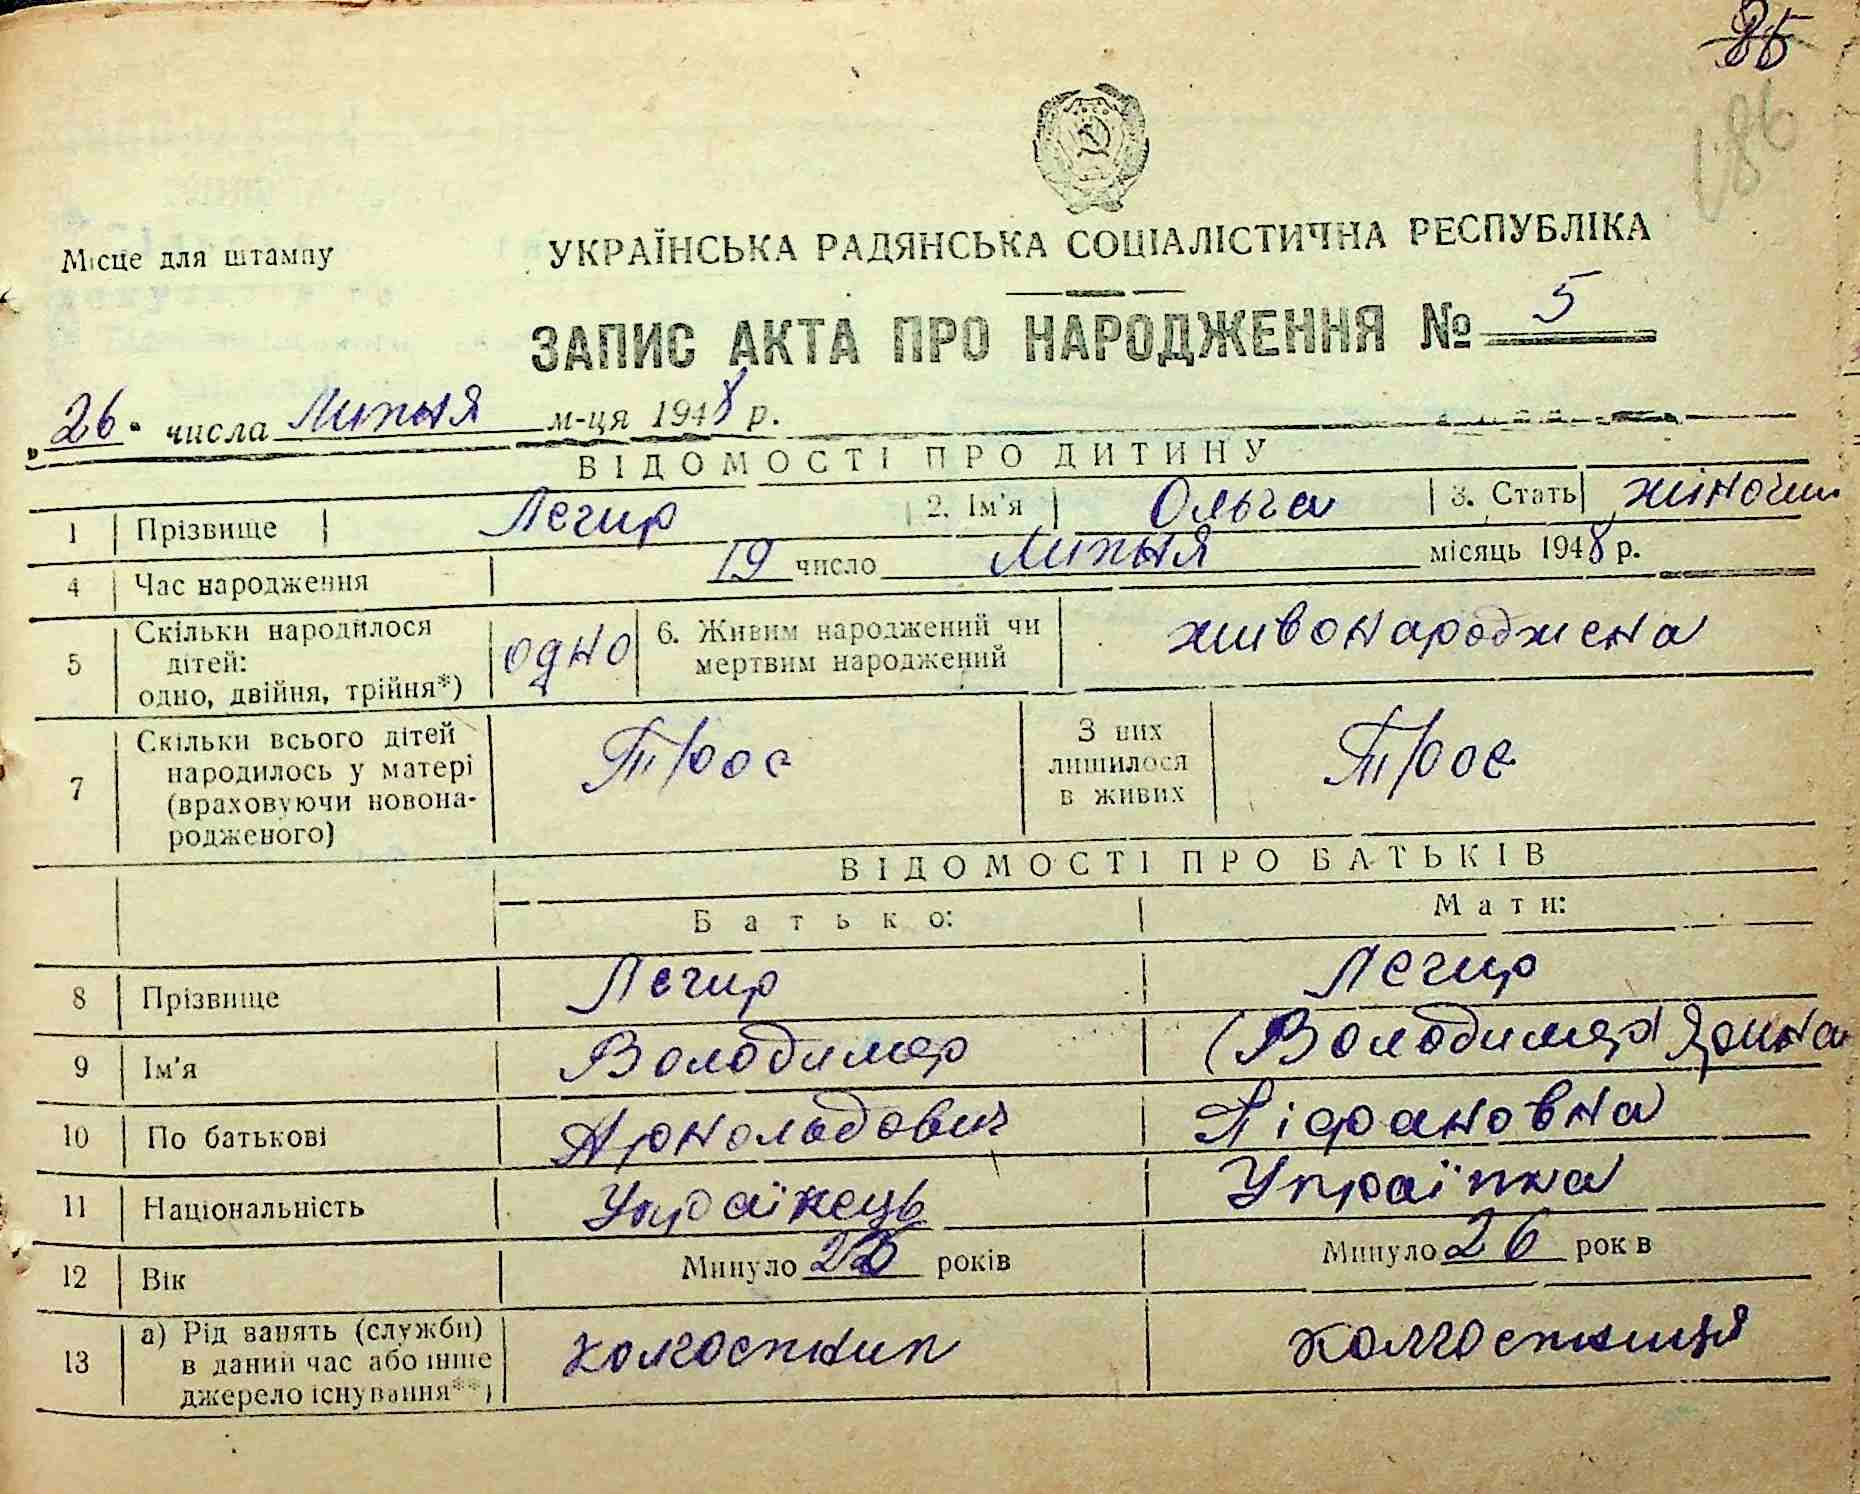 85
186
Місце для штампу
УКРАЇНСЬКА РАДЯНСЬКА СОЦІАЛІСТИЧНА РЕСПУБЛІКА
ЗАПИС АКТА ПРО НАРОДЖЕННЯ № 5
„26" числа Липня м-ця 1948 р.
ВІДОМОСТІ ПРО ДИТИНУ
1 Прізвище Легир 2. Ім'я Ольга 3. Стать жіночи
4 Час народження 19 число Липня місяць 1948 р.
5 Скільки народилося дітей: одно, двійня, трійня*) одно 6. Живим народжений чи мертвим народжений живонароджена
7 Скільки всього дітей народилось у матері (враховуючи новонародженого) Троє З них лишилося в живих Троє
ВІДОМОСТІ ПРО БАТЬКІВ
Батько: Мати:
8 Прізвище Легир Легир
9 Ім'я Володимер (Володимер) Ярина
10 По батькові Арнольдович
11 Національність Українець Українка
12 Вік Минуло років Минуло 26 років
13 а) Рід занять (служби) в даний час або інше джерело існування**) колгоспник колгоспниця